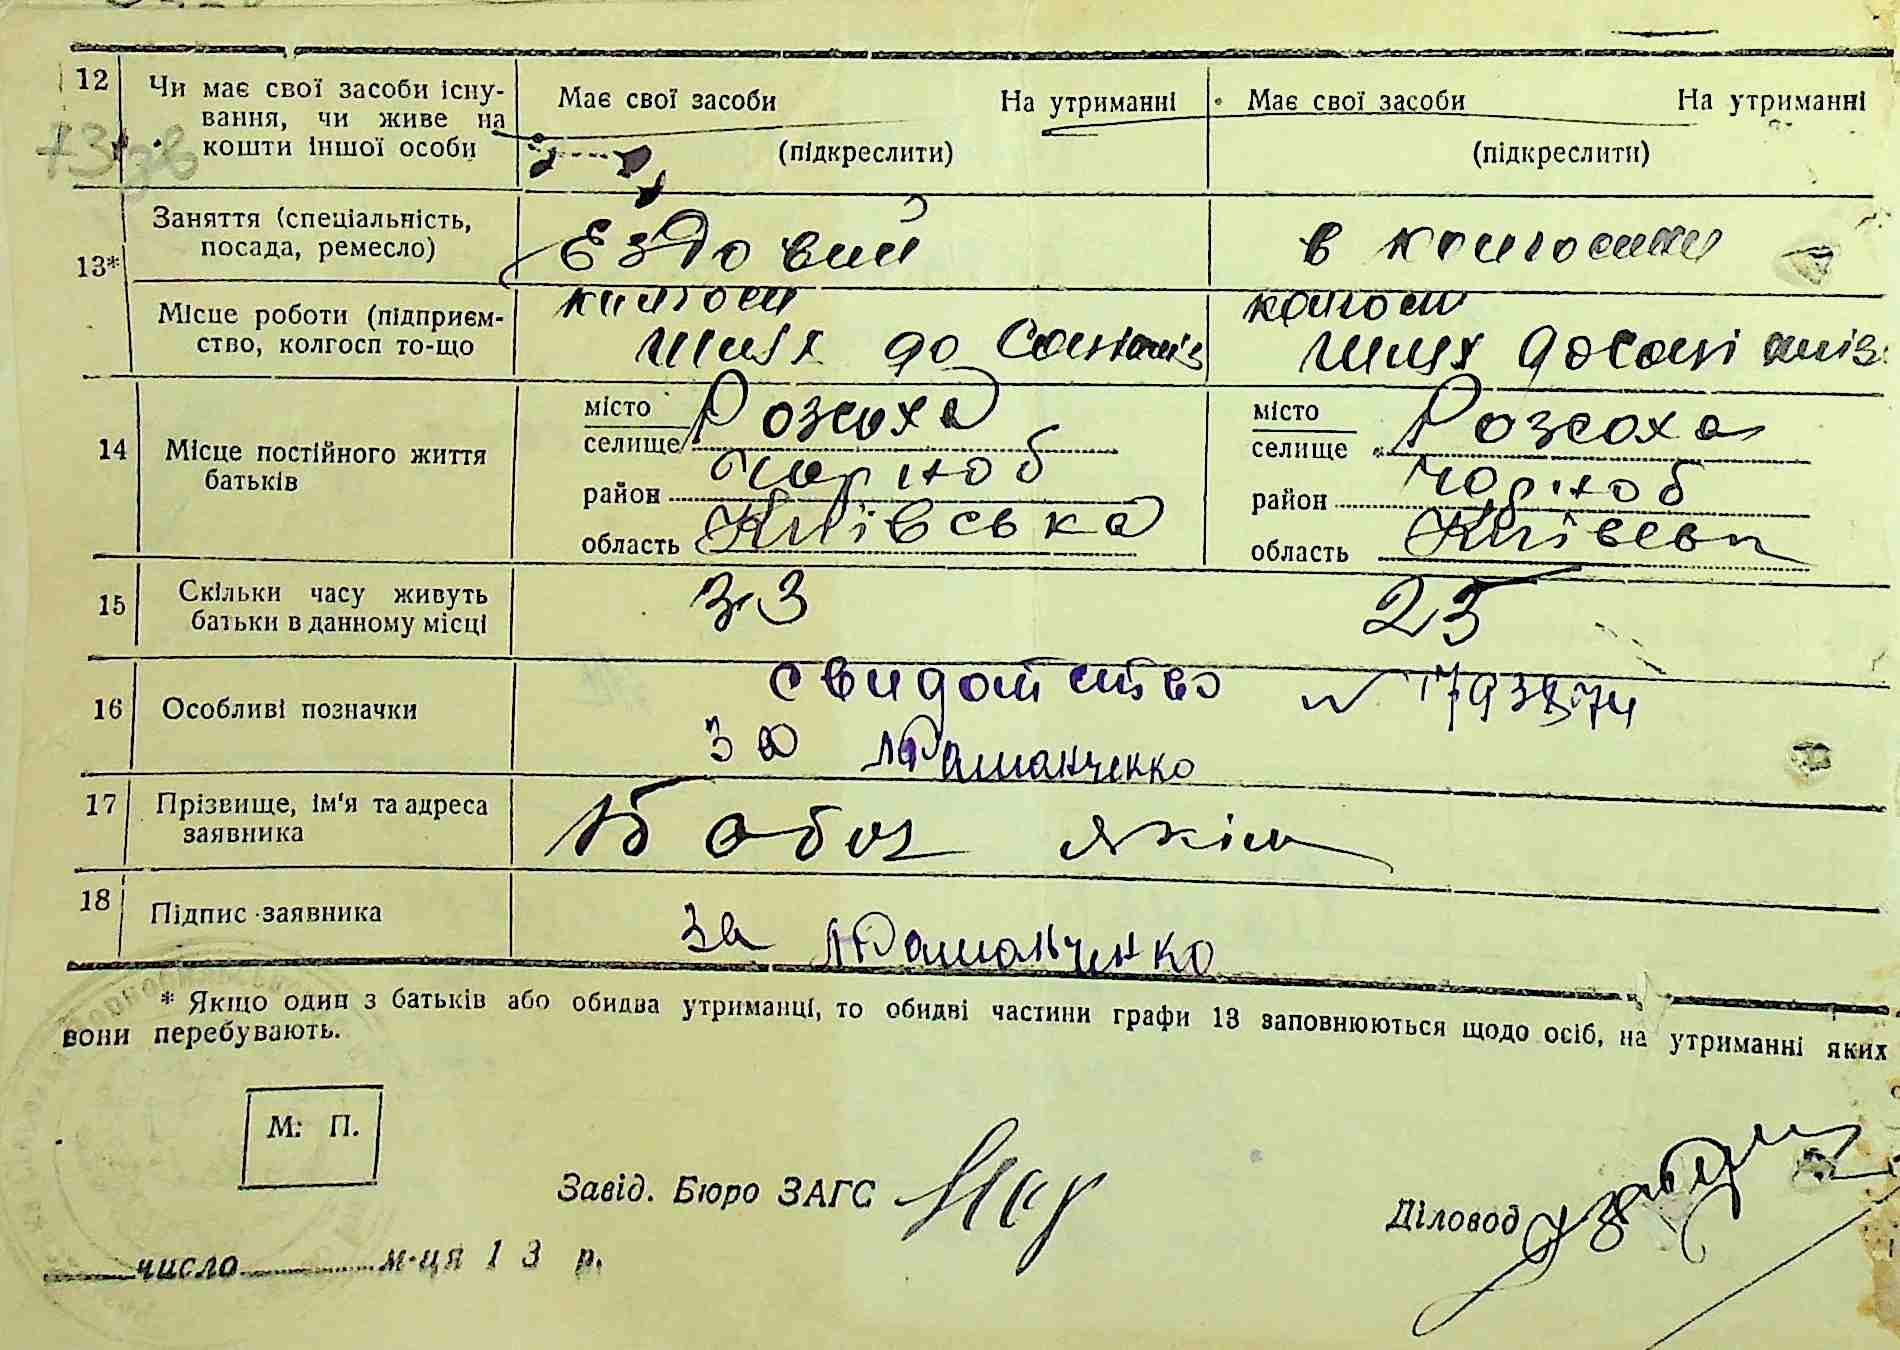 12 Чи має свої засоби існу-
вання, чи живе на
кошти іншої особи
Має свої засоби На утриманні
(підкреслити)
Має свої засоби На утриманні
(підкреслити)
13*
Заняття (спеціальність,
посада, ремесло)
Ездовий
в колгоспи
Місце роботи (підприєм-
ство, колгосп то-що
колгосп
шлях до Соціаліз
колгосп
шлях до Соціаліз
14 Місце постійного життя
батьків
місто
селище Розсоха
район Чорноб
область Київська
місто
селище Розсоха
район Чорноб
область Київськ
15 Скільки часу живуть
батьки в данному місці
33
25
16 Особливі позначки
свидотство №
за Адаманченко
17 Прізвище, ім'я та адреса
заявника
Якім
18 Підпис заявника
за Адаманченко
* Якщо один з батьків або обидва утриманці, то обидві частини графи 13 заповнюються щодо осіб, на утриманні яких
вони перебувають.
М. П.
Завід. Бюро ЗАГС
Діловод
число м-ця 1 3 р.